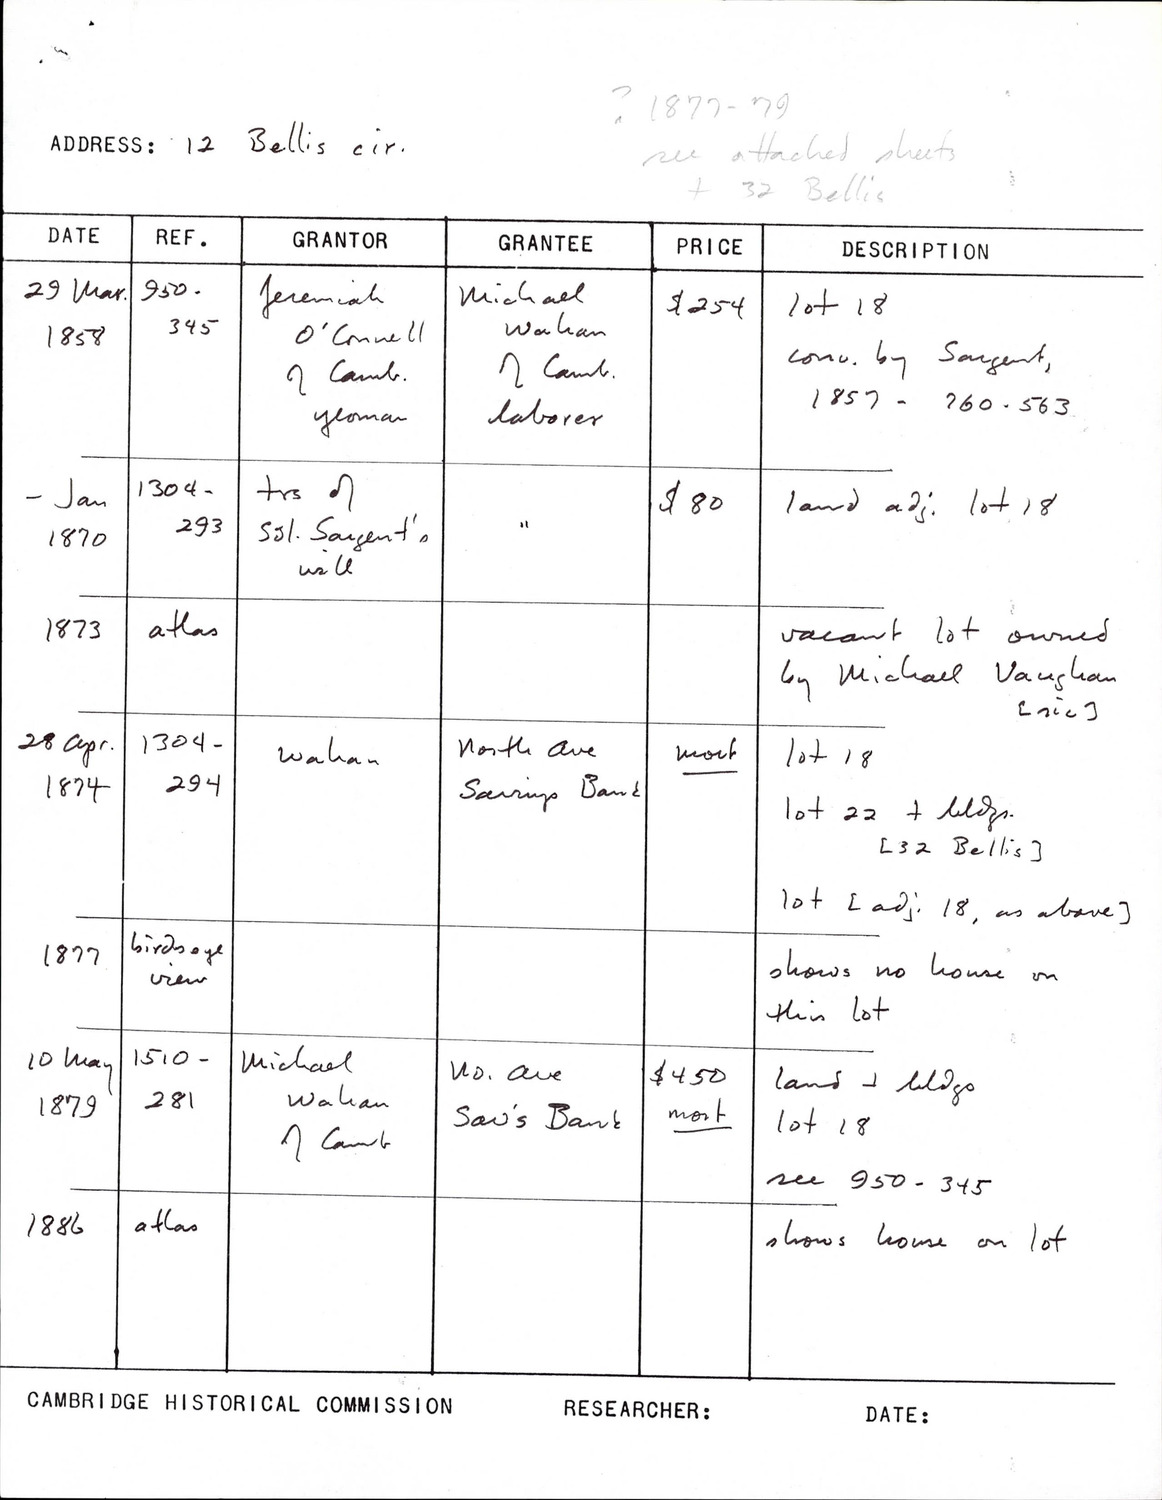 ? 1877-79
ADDRESS: 12 Bellis cir.
see attached sheets
+ 32 Bellis
DATE REF. GRANTOR GRANTEE PRICE DESCRIPTION
29 Mar. 950- Jeremiah Michael $254 lot 18
1858 345 O'Connell Wahan conv. by Sargent,
of Camb. of Camb. 1857 - 760.563
yeoman laborer
- Jan 1304- trs of " $80 land adj. lot 18
1870 293 Sol. Sargent's
will
1873 atlas vacant lot owned
by Michael Vaughan
[sic]
28 Apr. 1304- Wahan North Ave mort lot 18
1874 294 Savings Bank lot 22 + bldgs.
[32 Bellis]
lot [adj. 18, as above]
1877 birdseye shows no house on
view this lot
10 May 1510- Michael No. Ave $450 land + bldgs
1879 281 Wahan Sav's Bank mort lot 18
of Camb
see 950-345
1886 atlas shows house on lot
CAMBRIDGE HISTORICAL COMMISSION RESEARCHER: DATE: